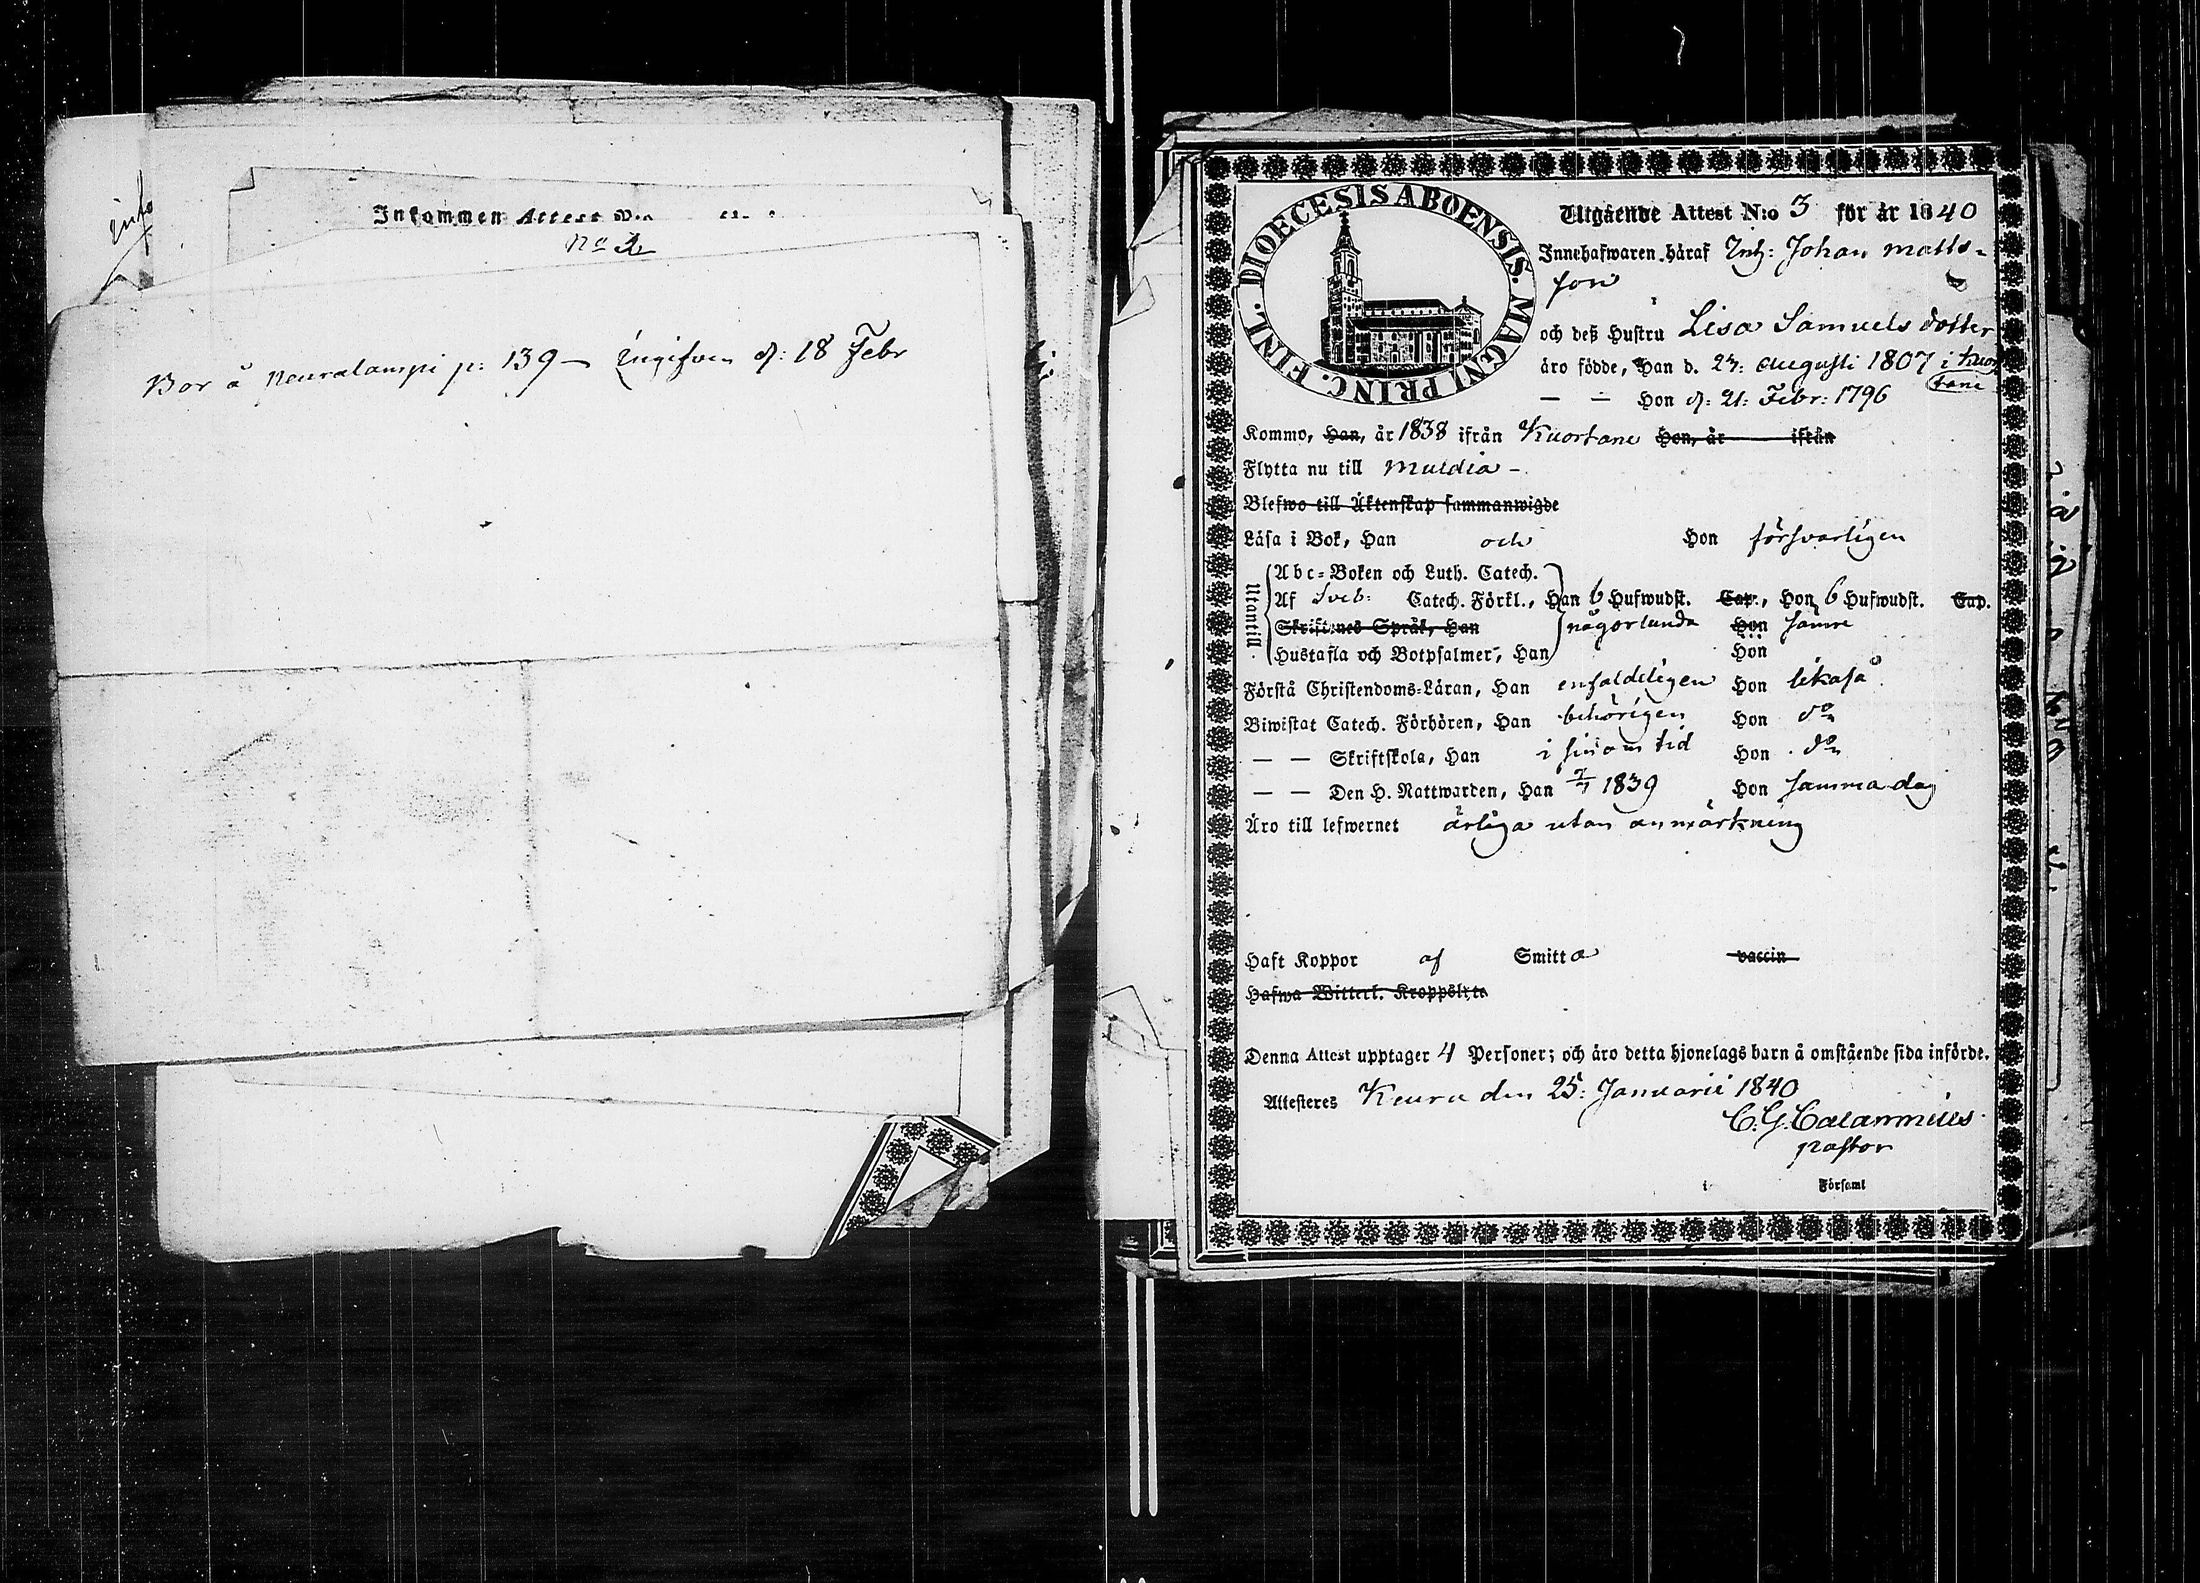 info
Inkommen Attest N:o
No 3
Bor å Neuralampi p: 139 — Ingifven d: 18 Febr
DIOECESIS ABOENSIS. MAGNI PRINC. FINL.
Utgående Attest N:o 3 för år 1840
Innehafwaren häraf Inh: Johan Matts-
son
och deß Hustru Lisa Samuels dotter
äro födde, Han d. 27: Augusti 1807 i Kuor
tane
— — Hon d: 21: Febr: 1796
Kommo, Han, år 1838 ifrån Kuortane Hon, år ifrån
Flytta nu till Muldia -
Blefwo till Äktenskap sammanwigde
Läsa i Bok, Han och Hon försvarligen
Utantill
Abc-Boken och Luth. Catech.
Af Sveb: Catech. Förkl., Han 6 Hufwudst. Cap., Hon 6 Hufwudst. Cap.
Skriftenes Språk, Han någorlunda Hon sämre
Hustafla och Botpsalmer, Han Hon
Förstå Christendoms-Läran, Han enfaldeligen Hon likaså
Biwistat Catech. Förhören, Han behörigen Hon do
— — Skriftskola, Han i sin om tid Hon do
— — Den H. Nattwarden, Han 7/7 1839 Hon samma dag
Äro till lefwernet ärliga utan anmärkning
Haft Koppor af Smitta vaccin
Hafwa Witterl. Kroppslyte
Denna Attest upptager 4 Personer; och äro detta hjonelags barn å omstående sida införde.
Attesteres Keuru den 25: Januarii 1840
C. G. Calamnius
Pastor
i Församl